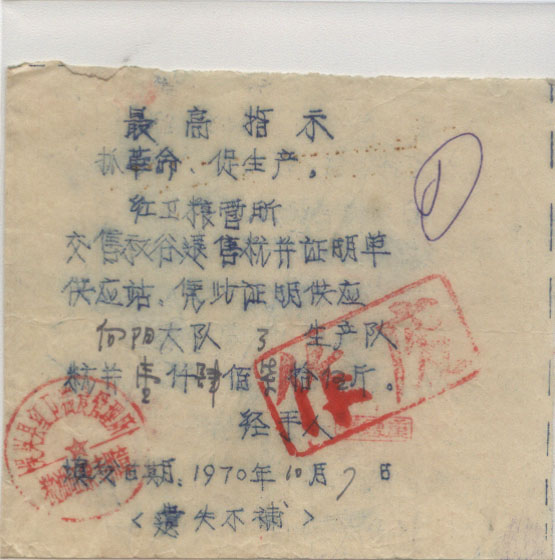 最高指示
抓革命、促生产。
红卫粮营所
交售秋谷返售枯并证明单
供应站、凭此证明供应
向阳大队 3 生产队
枯并壹仟肆佰 拾 斤。
经手人
填发日期、1970年10月7日
<遗失不補>
作废